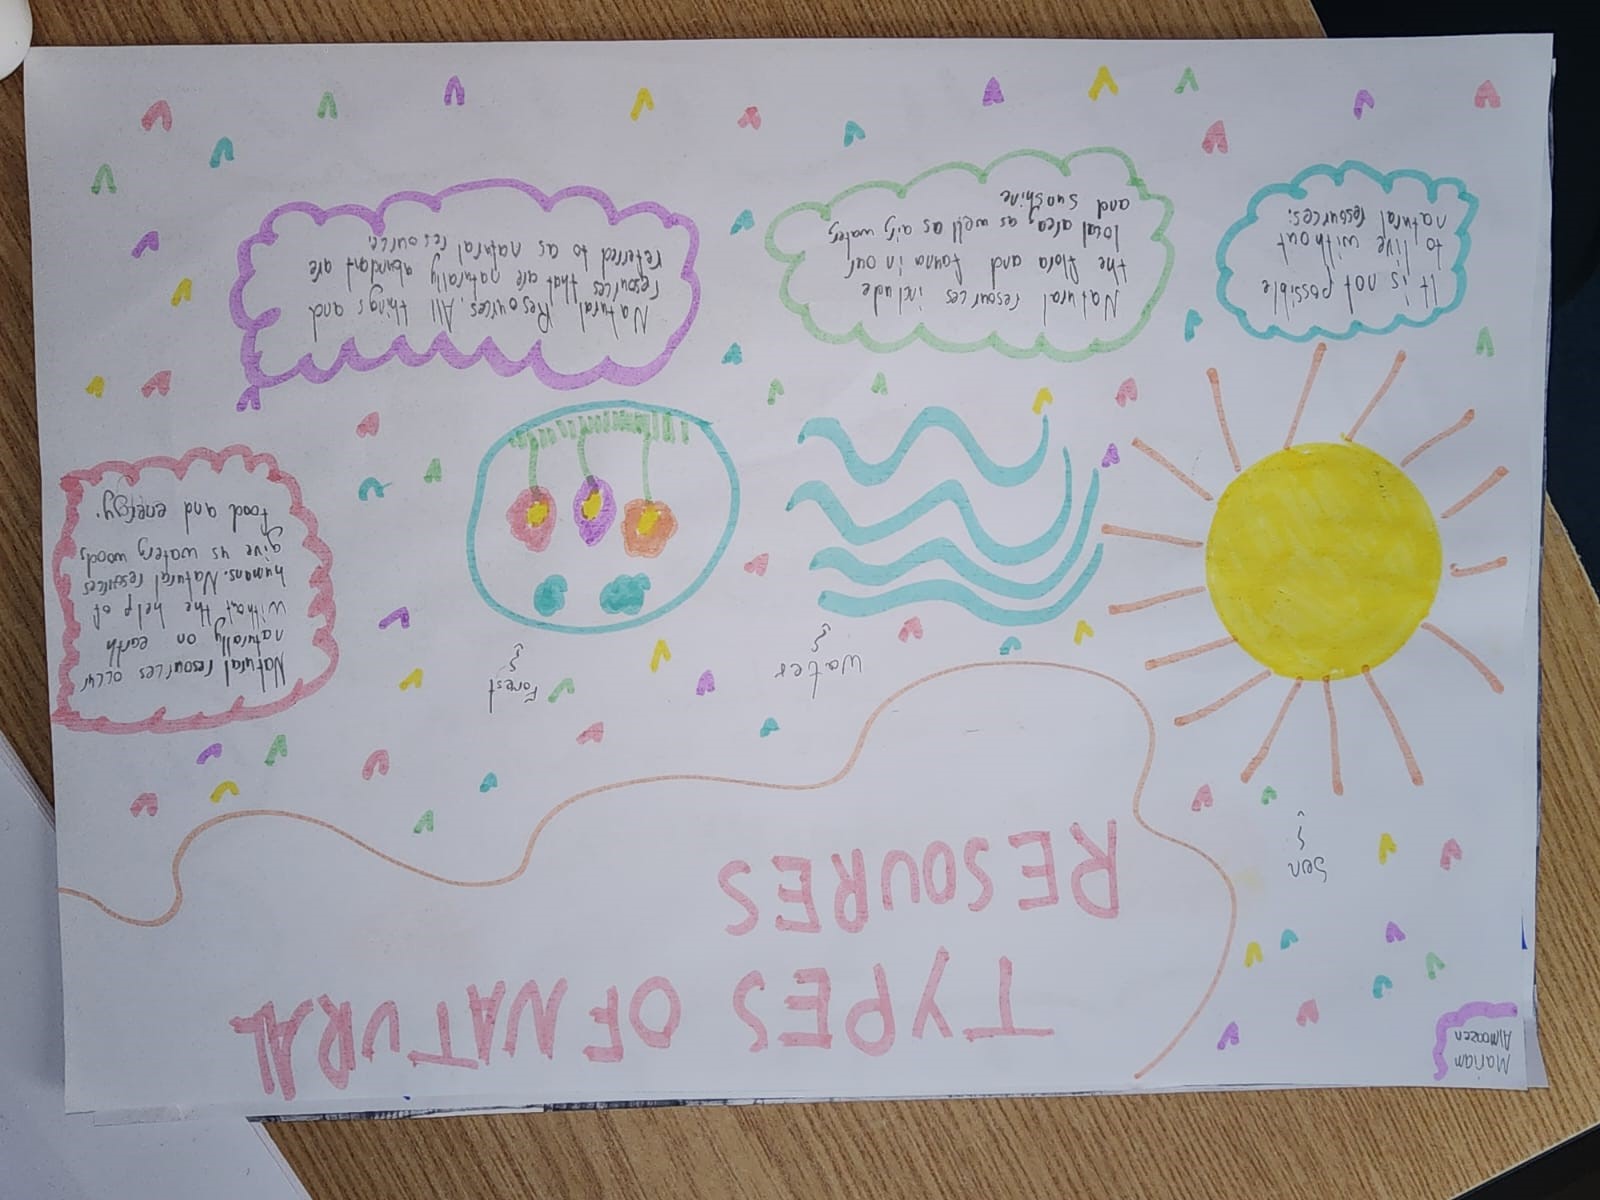 Mariam
Almoazen
TYPES OF NATURAL
RESOURES
Sun
Water
Forest
Natural resources occur
naturally on earth
without the help of
humans. Natural resources
give us water, woods,
food and energy.
It is not possible
to live without
natural resources.
Natural resources include
the flora and fauna in our
local area, as well as air, water,
and sunshine
Natural Resources. All things and
resources that are naturally abundant are
referred to as natural resource.